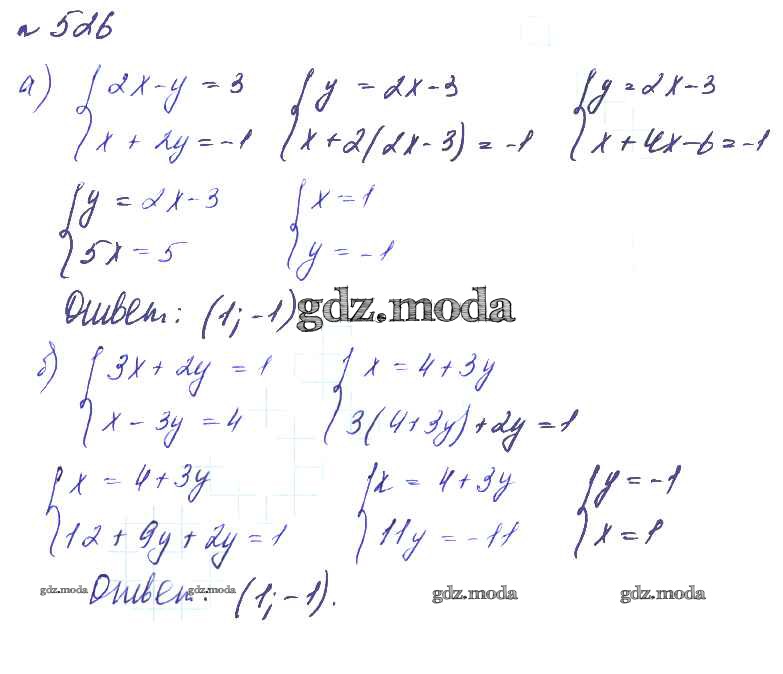 № 526
а) { 2x - y = 3 { y = 2x - 3 { y = 2x - 3
{ x + 2y = -1 { x + 2(2x - 3) = -1 { x + 4x - 6 = -1
{ y = 2x - 3 { x = 1
{ 5x = 5 { y = -1
Ответ: (1; -1) gdz.moda
б) { 3x + 2y = 1 { x = 4 + 3y
{ x - 3y = 4 { 3(4 + 3y) + 2y = 1
{ x = 4 + 3y { x = 4 + 3y { y = -1
{ 12 + 9y + 2y = 1 { 11y = -11 { x = 1
gdz.moda Ответ: gdz.moda (1; -1). gdz.moda gdz.moda